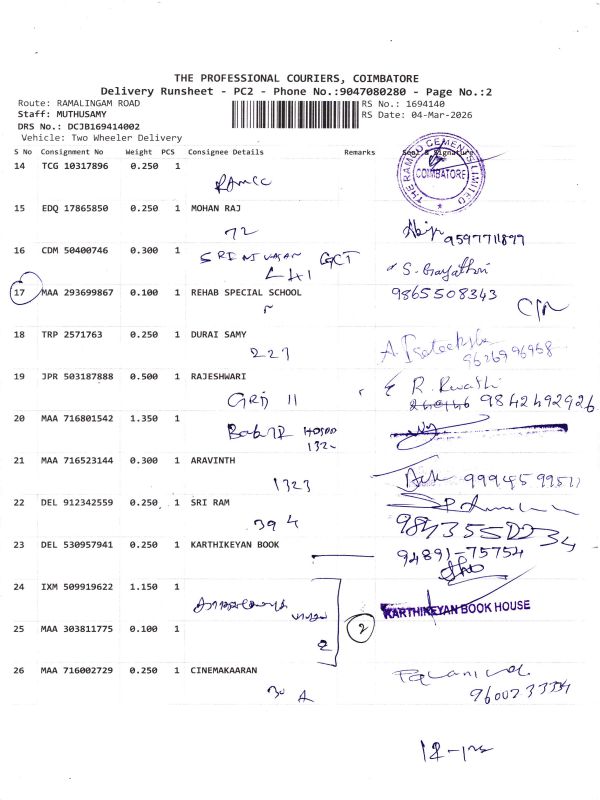 THE PROFESSIONAL COURIERS, COIMBATORE
Delivery Runsheet - PC2 - Phone No.:9047080280 - Page No.:2
Route: RAMALINGAM ROAD
RS No.: 1694140
Staff: MUTHUSAMY
RS Date: 04-Mar-2026
DRS No.: DCJB169414002
Vehicle: Two Wheeler Delivery
S No Consignment No Weight PCS Consignee Details Remarks Seal & Signature
THE RAMCO CEMENTS LIMITED
COIMBATORE
14 TCG 10317896 0.250 1
15 EDQ 17865850 0.250 1 MOHAN RAJ
72
9597711899
16 CDM 50400746 0.300 1 SRINIVASAN GCT
S. Gayathri
17 MAA 293699867 0.100 1 REHAB SPECIAL SCHOOL 9865508343
18 TRP 2571763 0.250 1 DURAI SAMY
227
19 JPR 503187888 0.500 1 RAJESHWARI
GRD 11
R. Revathi
9842492926
20 MAA 716801542 1.350 1
132
21 MAA 716523144 0.300 1 ARAVINTH
1323
22 DEL 912342559 0.250 1 SRI RAM
394
23 DEL 530957941 0.250 1 KARTHIKEYAN BOOK
94891-75754
24 IXM 509919622 1.150 1
KARTHIKEYAN BOOK HOUSE
2
25 MAA 303811775 0.100 1
2
26 MAA 716002729 0.250 1 CINEMAKAARAN
30 A